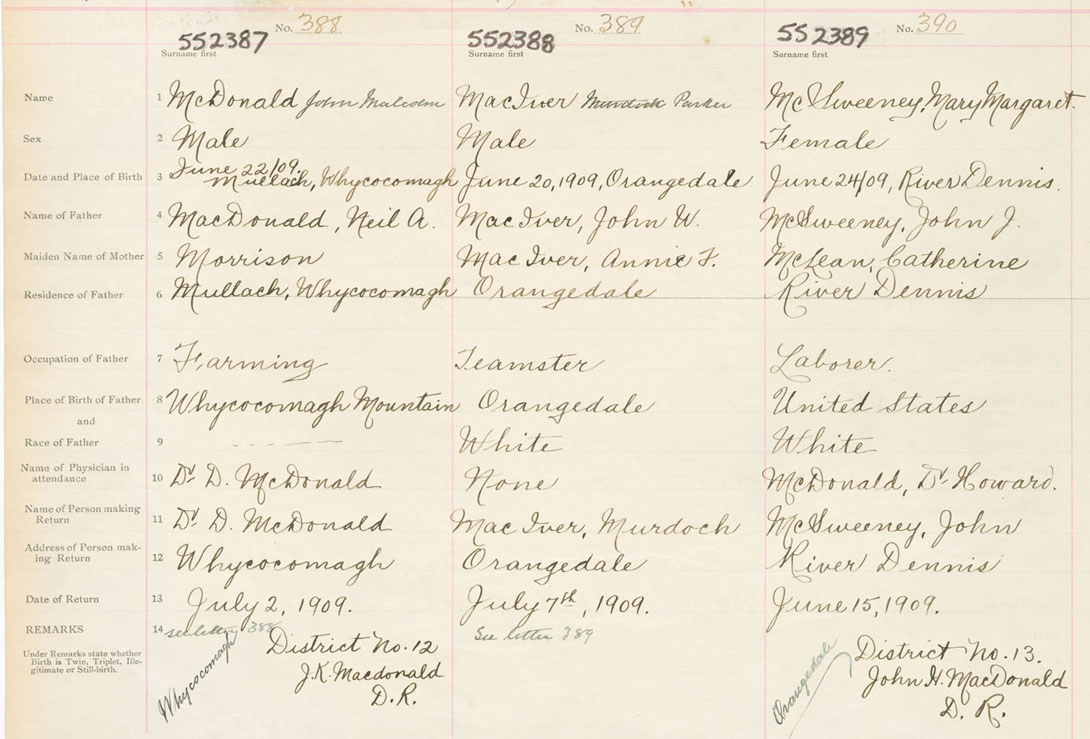 No. 388 No. 389 No. 390
552387 552388 552389
Surname first Surname first Surname first
Name 1 McDonald John Malcolm MacIver Murdock Parker McSweeney, Mary Margaret.
Sex 2 Male Male Female
June 22/09.
Date and Place of Birth 3 Mullach, Whycocomagh June 20, 1909, Orangedale June 24/09, River Dennis.
Name of Father 4 MacDonald, Neil A. MacIver, John W. McSweeney, John J.
Maiden Name of Mother 5 Morrison MacIver, Annie F. McLean, Catherine
Residence of Father 6 Mullach, Whycocomagh Orangedale River Dennis
Occupation of Father 7 Farming Teamster Laborer.
Place of Birth of Father 8 Whycocomagh Mountain Orangedale United States
and
Race of Father 9 - - - - - White White
Name of Physician in
attendance 10 Dr D. McDonald None McDonald, Dr Howard.
Name of Person making
Return 11 Dr D. McDonald MacIver, Murdoch McSweeney, John
Address of Person mak-
ing Return 12 Whycocomagh Orangedale River Dennis
Date of Return 13 July 2, 1909. July 7th, 1909. June 15, 1909.
REMARKS 14 see letter 388 See letter 389
Under Remarks state whether
Birth is Twin, Triplet, Ille-
gitimate or Still-birth.
Whycocomagh
District No. 12
J.K. Macdonald
D.R.
Orangedale
District No. 13.
John H. MacDonald
D. R.